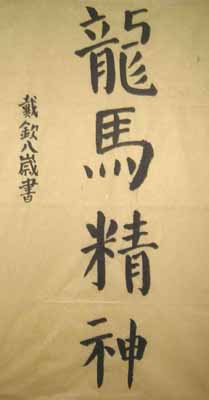 龍馬精神
戴欽八歲書